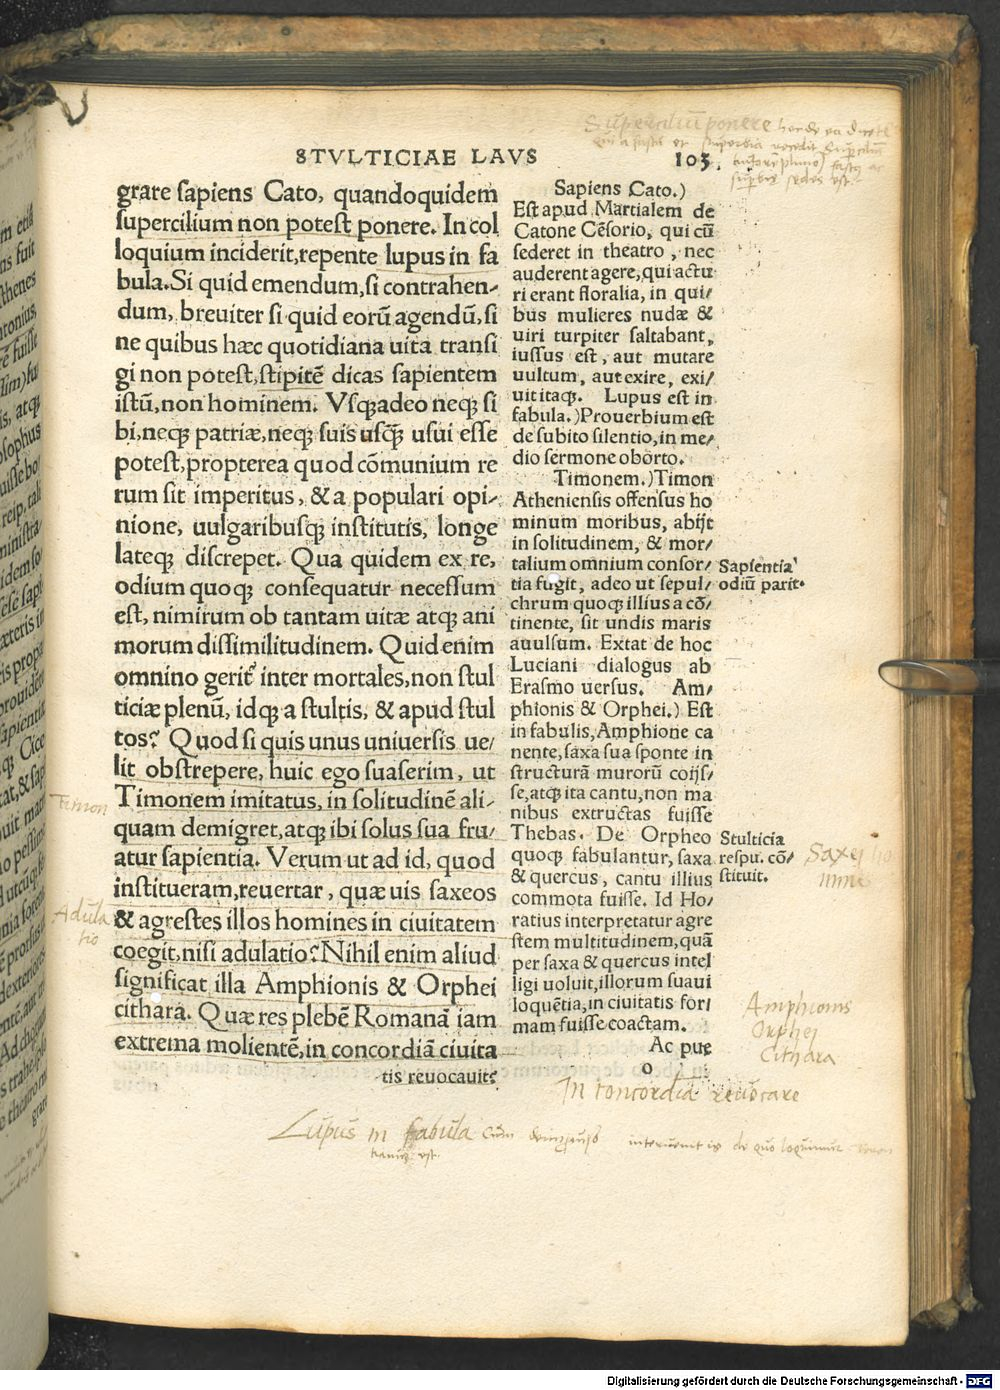 STVLTICIAE LAVS 105.
grare sapiens Cato, quandoquidem
supercilium non potest ponere. In col
loquium inciderit, repente lupus in fa
bula. Si quid emendum, si contrahen-
dum, breuiter si quid eorũ agendũ, si
ne quibus hæc quotidiana uita transi
gi non potest, stipitẽ dicas sapientem
istũ, non hominem. Vsqꝫadeo neqꝫ si
bi, neqꝫ patriæ, neqꝫ suis usq̃ȝ usui esse
potest, propterea quod cõmunium re
rum sit imperitus, & a populari opi-
nione, uulgaribusqꝫ institutis, longe
lateqꝫ discrepet. Qua quidem ex re,
odium quoqꝫ consequatur necessum
est, nimirum ob tantam uitæ atqꝫ ani
morum dissimilitudinem. Quid enim
omnino gerit᷑ inter mortales, non stul
ticiæ plenũ, idqꝫ a stultis, & apud stul
tos? Quod si quis unus uniuersis ue-
lit obstrepere, huic ego suaserim, ut
Timonem imitatus, in solitudinẽ ali-
quam demigret, atqꝫ ibi solus sua fru-
atur sapientia. Verum ut ad id, quod
institueram, reuertar, quæ uis saxeos
& agrestes illos homines in ciuitatem
coegit, nisi adulatio? Nihil enim aliud
significat illa Amphionis & Orphei
cithara. Quæ res plebẽ Romanã iam
extrema molientẽ, in concordiã ciuita
tis reuocauit?
Sapiens Cato.)
Est apud Martialem de
Catone Cẽsorio, qui cũ
sederet in theatro, nec
auderent agere, qui actu
ri erant floralia, in qui-
bus mulieres nudæ &
uiri turpiter saltabant,
iussus est, aut mutare
uultum, aut exire, exi-
uit itaqꝫ. Lupus est in
fabula.) Prouerbium est
de subito silentio, in me-
dio sermone oborto.
Timonem.) Timon
Atheniensis offensus ho
minum moribus, abijt
in solitudinem, & mor-
talium omnium consor-
tia fugit, adeo ut sepul-
chrum quoqꝫ illius a cõ-
tinente, sit undis maris
auulsum. Extat de hoc
Luciani dialogus ab
Erasmo uersus. Am-
phionis & Orphei.) Est
in fabulis, Amphione ca
nente, saxa sua sponte in
structurã murorũ coijs-
se, atqꝫ ita cantu, non ma
nibus extructas fuisse
Thebas. De Orpheo
quoqꝫ fabulantur, saxa
& quercus, cantu illius
commota fuisse. Id Ho-
ratius interpretatur agre
stem multitudinem, quã
per saxa & quercus intel
ligi uoluit, illorum suaui
loquẽtia, in ciuitatis for-
mam fuisse coactam.
Ac pue
o
Sapientia
odiũ parit.
Stulticia
respu. cõ-
stituit.
Superciliũ ponere
Timon
Adula
tio
Saxei ho
mines
Amphionis
Orphei
Cithara
In concordiã reuocare
Lupus in fabula
interuenit is de quo loquimur
Digitalisierung gefördert durch die Deutsche Forschungsgemeinschaft - DFG